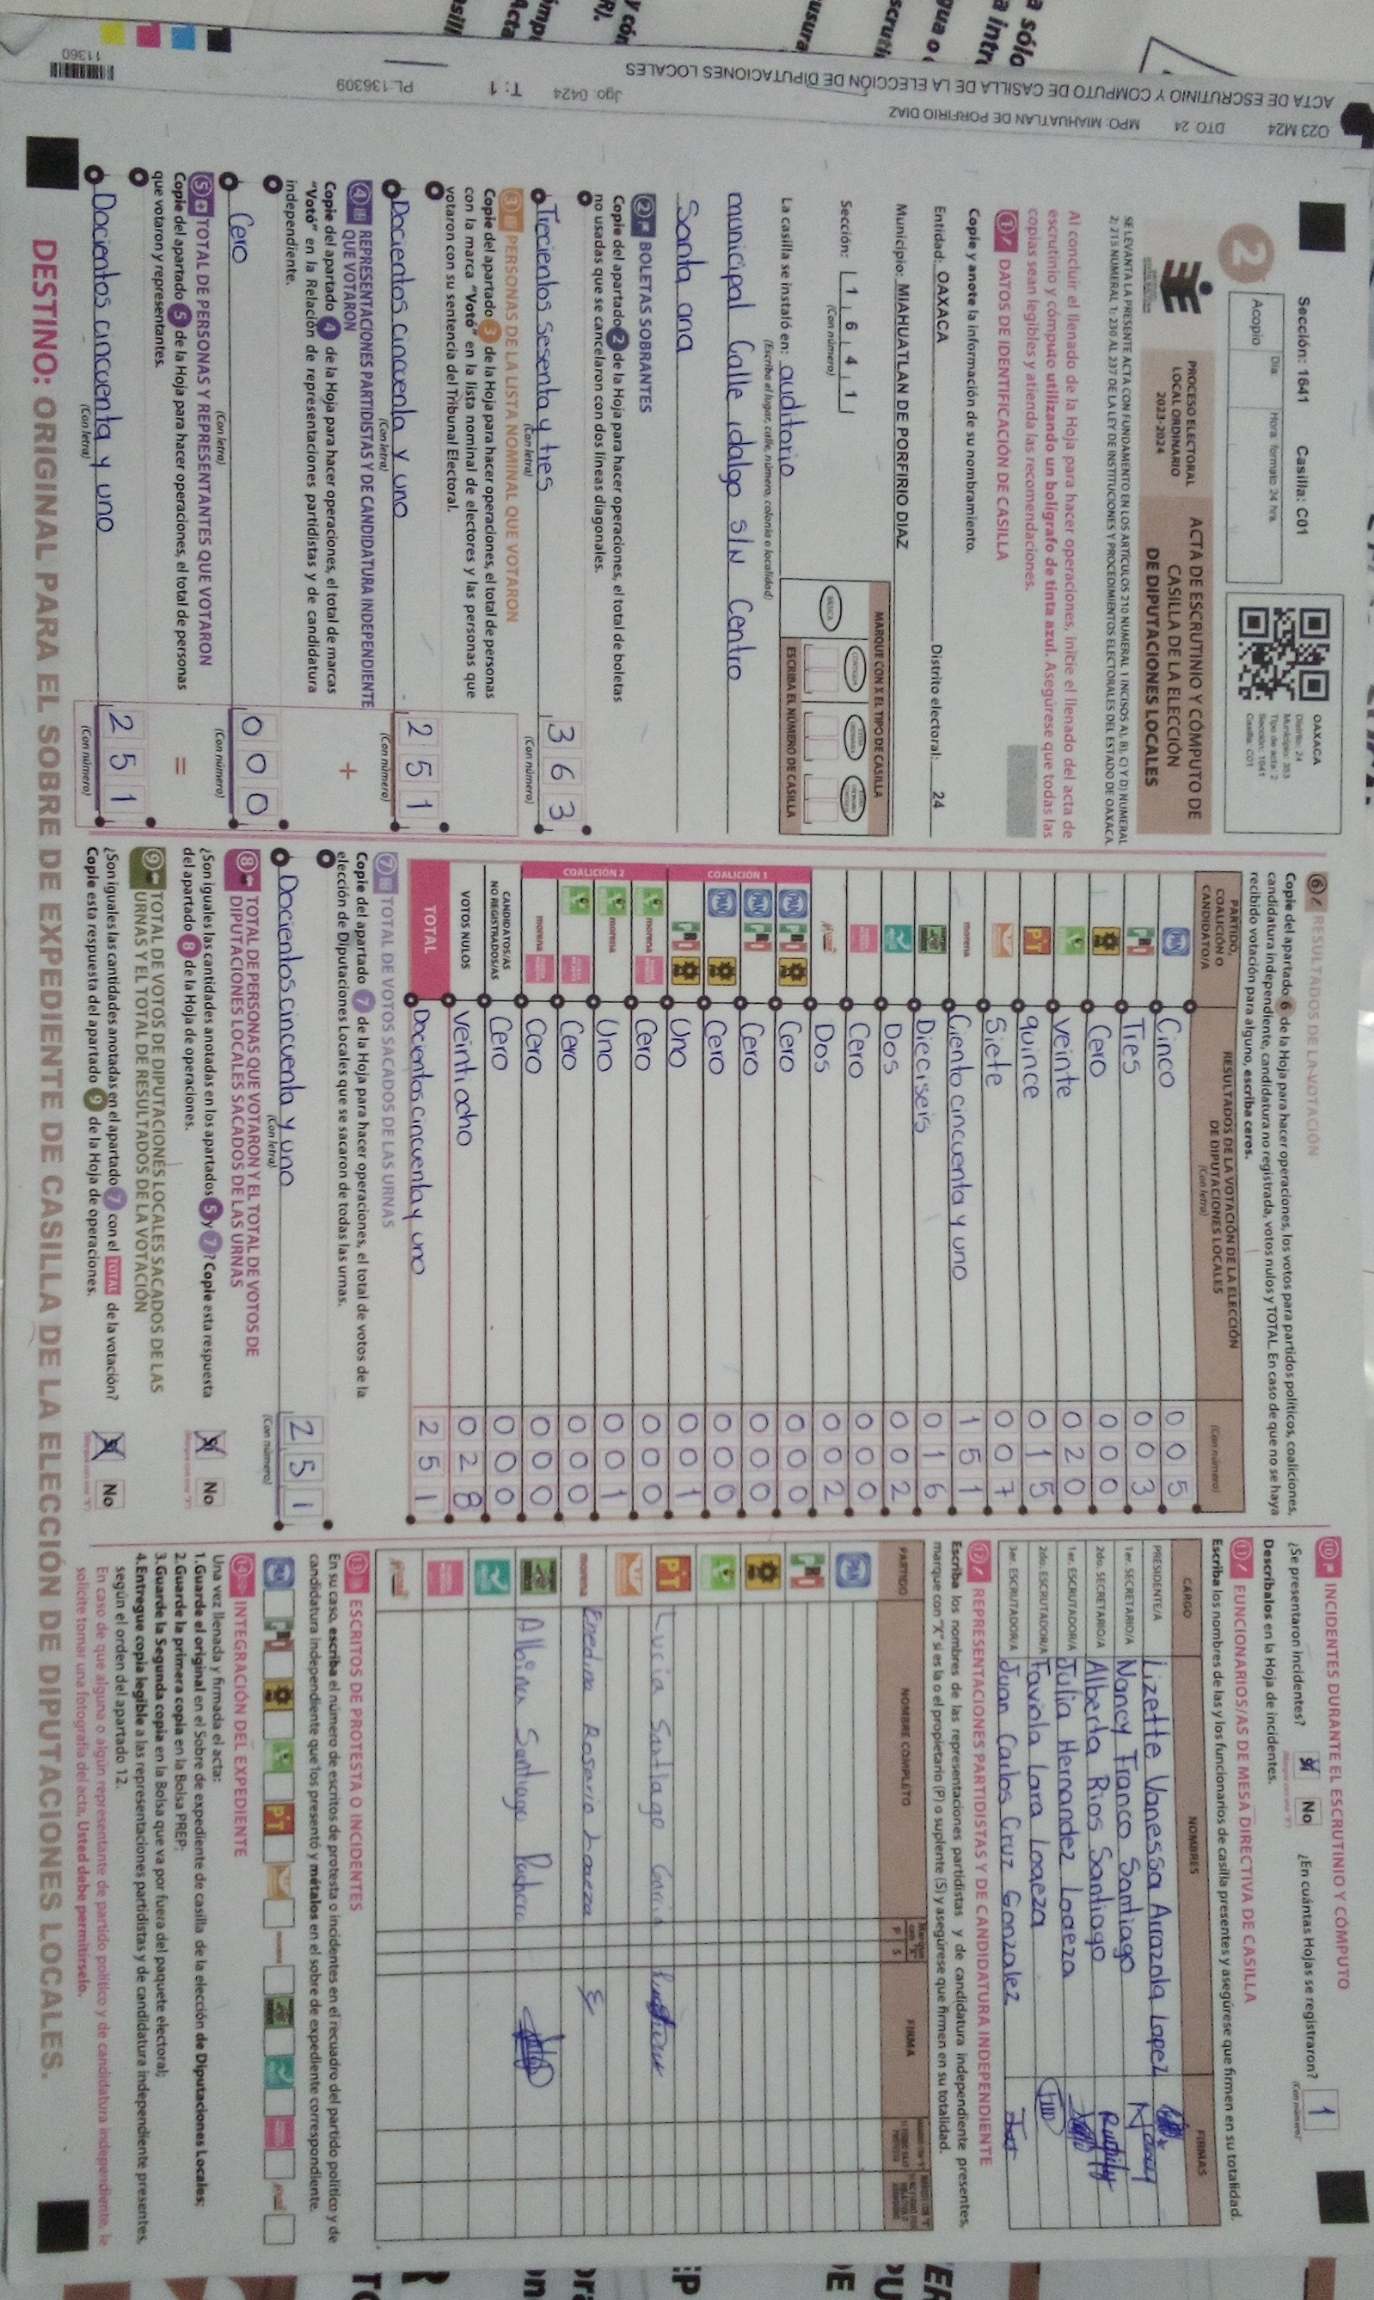 ACTA DE ESCRUTINIO Y CÓMPUTO DE CASILLA DE LA ELECCIÓN DE DIPUTACIONES LOCALES
023 M24 DTO. 24 MPO: MIAHUATLAN DE PORFIRIO DIAZ
Jgo: 0424 T: 1 PL.136309
11360
Sección: 1641 Casilla: C01
2
Acopio
Día Hora: formato 24 hrs.
OAXACA
Distrito: 24
Tipo de acta: 2
Sección: 1641
Casilla: C01
PROCESO ELECTORAL
LOCAL ORDINARIO
2023-2024
ACTA DE ESCRUTINIO Y CÓMPUTO DE
CASILLA DE LA ELECCIÓN
DE DIPUTACIONES LOCALES
SE LEVANTA LA PRESENTE ACTA CON FUNDAMENTO EN LOS ARTÍCULOS 210 NUMERAL 1 INCISOS A), B), C) Y D) NUMERAL
2; 215 NUMERAL 1; 230 AL 237 DE LA LEY DE INSTITUCIONES Y PROCEDIMIENTOS ELECTORALES DEL ESTADO DE OAXACA.
Al concluir el llenado de la Hoja para hacer operaciones, inicie el llenado del acta de
escrutinio y cómputo utilizando un bolígrafo de tinta azul. Asegúrese que todas las
copias sean legibles y atienda las recomendaciones.
1 DATOS DE IDENTIFICACIÓN DE CASILLA
Copie y anote la información de su nombramiento.
Entidad: OAXACA Distrito electoral: 24
Municipio: MIAHUATLAN DE PORFIRIO DIAZ
Sección: 1 6 4 1
(Con número)
MARQUE CON X EL TIPO DE CASILLA
BÁSICA
ESCRIBA EL NÚMERO DE CASILLA
La casilla se instaló en: auditorio
(Escriba el lugar, calle, número, colonia o localidad)
municipal Calle idalgo s/N Centro
Santa ana
2 BOLETAS SOBRANTES
Copie del apartado 2 de la Hoja para hacer operaciones, el total de boletas
no usadas que se cancelaron con dos líneas diagonales.
Trecientos sesenta y tres 3 6 3
(Con letra) (Con número)
3 PERSONAS DE LA LISTA NOMINAL QUE VOTARON
Copie del apartado 3 de la Hoja para hacer operaciones, el total de personas
con la marca "Votó" en la lista nominal de electores y las personas que
votaron con su sentencia del Tribunal Electoral.
Docientos cincuenta y uno 2 5 1
(Con letra) (Con número)
4 REPRESENTACIONES PARTIDISTAS Y DE CANDIDATURA INDEPENDIENTE
QUE VOTARON
Copie del apartado 4 de la Hoja para hacer operaciones, el total de marcas
"Votó" en la Relación de representaciones partidistas y de candidatura
independiente.
+
Cero 0 0 0
(Con letra) (Con número)
5 TOTAL DE PERSONAS Y REPRESENTANTES QUE VOTARON
Copie del apartado 5 de la Hoja para hacer operaciones, el total de personas
que votaron y representantes.
=
Docientos cincuenta y uno 2 5 1
(Con letra) (Con número)
6 RESULTADOS DE LA VOTACIÓN
Copie del apartado 6 de la Hoja para hacer operaciones, los votos para partidos políticos, coaliciones,
candidatura independiente, candidatura no registrada, votos nulos y TOTAL. En caso de que no se haya
recibido votación para alguno, escriba ceros.
PARTIDO, COALICIÓN O CANDIDATO/A
RESULTADOS DE LA VOTACIÓN DE LA ELECCIÓN DE DIPUTACIONES LOCALES
(Con letra) (Con número)
PAN Cinco 0 0 5
PRI Tres 0 0 3
PRD Cero 0 0 0
veinte 0 2 0
PT quince 0 1 5
Siete 0 0 7
morena Ciento cincuenta y uno 1 5 1
Dieciseis 0 1 6
Dos 0 0 2
Cero 0 0 0
Dos 0 0 2
COALICIÓN 1
PAN PRI PRD Cero 0 0 0
PAN PRI Cero 0 0 0
PAN PRD Cero 0 0 0
PRI PRD Uno 0 0 1
COALICIÓN 2
morena Cero 0 0 0
morena Uno 0 0 1
Cero 0 0 0
morena Cero 0 0 0
CANDIDATOS/AS NO REGISTRADOS/AS Cero 0 0 0
VOTOS NULOS veintiocho 0 2 8
TOTAL Docientos cincuenta y uno 2 5 1
7 TOTAL DE VOTOS SACADOS DE LAS URNAS
Copie del apartado 7 de la Hoja para hacer operaciones, el total de votos de la
elección de Diputaciones Locales que se sacaron de todas las urnas.
Docientos cincuenta y uno 2 5 1
(Con letra) (Con número)
8 TOTAL DE PERSONAS QUE VOTARON Y EL TOTAL DE VOTOS DE
DIPUTACIONES LOCALES SACADOS DE LAS URNAS
¿Son iguales las cantidades anotadas en los apartados 5 y 7? Copie esta respuesta
del apartado 8 de la Hoja de operaciones.
Sí No
9 TOTAL DE VOTOS DE DIPUTACIONES LOCALES SACADOS DE LAS
URNAS Y EL TOTAL DE RESULTADOS DE LA VOTACIÓN
¿Son iguales las cantidades anotadas en el apartado 7 con el TOTAL de la votación?
Copie esta respuesta del apartado 9 de la Hoja de operaciones.
Sí No
10 INCIDENTES DURANTE EL ESCRUTINIO Y CÓMPUTO
¿Se presentaron incidentes? Sí No ¿En cuántas Hojas se registraron? 1
(Con número)
Descríbalos en la Hoja de incidentes.
11 FUNCIONARIOS/AS DE MESA DIRECTIVA DE CASILLA
Escriba los nombres de las y los funcionarios de casilla presentes y asegúrese que firmen en su totalidad.
CARGO NOMBRES FIRMAS
PRESIDENTE/A Lizette Vanessa Arrazola Lopez
1er. SECRETARIO/A Nancy Franco Santiago
2do. SECRETARIO/A Alberta Rios Santiago
1er. ESCRUTADOR/A Julia Hernandez Loaeza
2do. ESCRUTADOR/A Faviola Lara Loaeza
3er. ESCRUTADOR/A Juan Carlos Cruz Gonzalez
12 REPRESENTACIONES PARTIDISTAS Y DE CANDIDATURA INDEPENDIENTE
Escriba los nombres de las representaciones partidistas y de candidatura independiente presentes,
marque con "X" si es la o el propietario (P) o suplente (S) y asegúrese que firmen en su totalidad.
PARTIDO NOMBRE COMPLETO P S FIRMA
PAN
PRI
PRD
PT Lucia Santiago Garcia
morena Enedina Rosario Loaeza
Albina Santiago
13 ESCRITOS DE PROTESTA O INCIDENTES
En su caso, escriba el número de escritos de protesta o incidentes en el recuadro del partido político y de
candidatura independiente que los presentó y métalos en el sobre de expediente correspondiente.
14 INTEGRACIÓN DEL EXPEDIENTE
Una vez llenada y firmada el acta:
1.Guarde el original en el Sobre de expediente de casilla de la elección de Diputaciones Locales;
2.Guarde la primera copia en la Bolsa PREP;
3.Guarde la Segunda copia en la Bolsa que va por fuera del paquete electoral;
4.Entregue copia legible a las representaciones partidistas y de candidatura independiente presentes,
según el orden del apartado 12.
En caso de que alguna o algún representante de partido político y de candidatura independiente, le
solicite tomar una fotografía del acta, Usted debe permitírselo.
DESTINO: ORIGINAL PARA EL SOBRE DE EXPEDIENTE DE CASILLA DE LA ELECCIÓN DE DIPUTACIONES LOCALES.